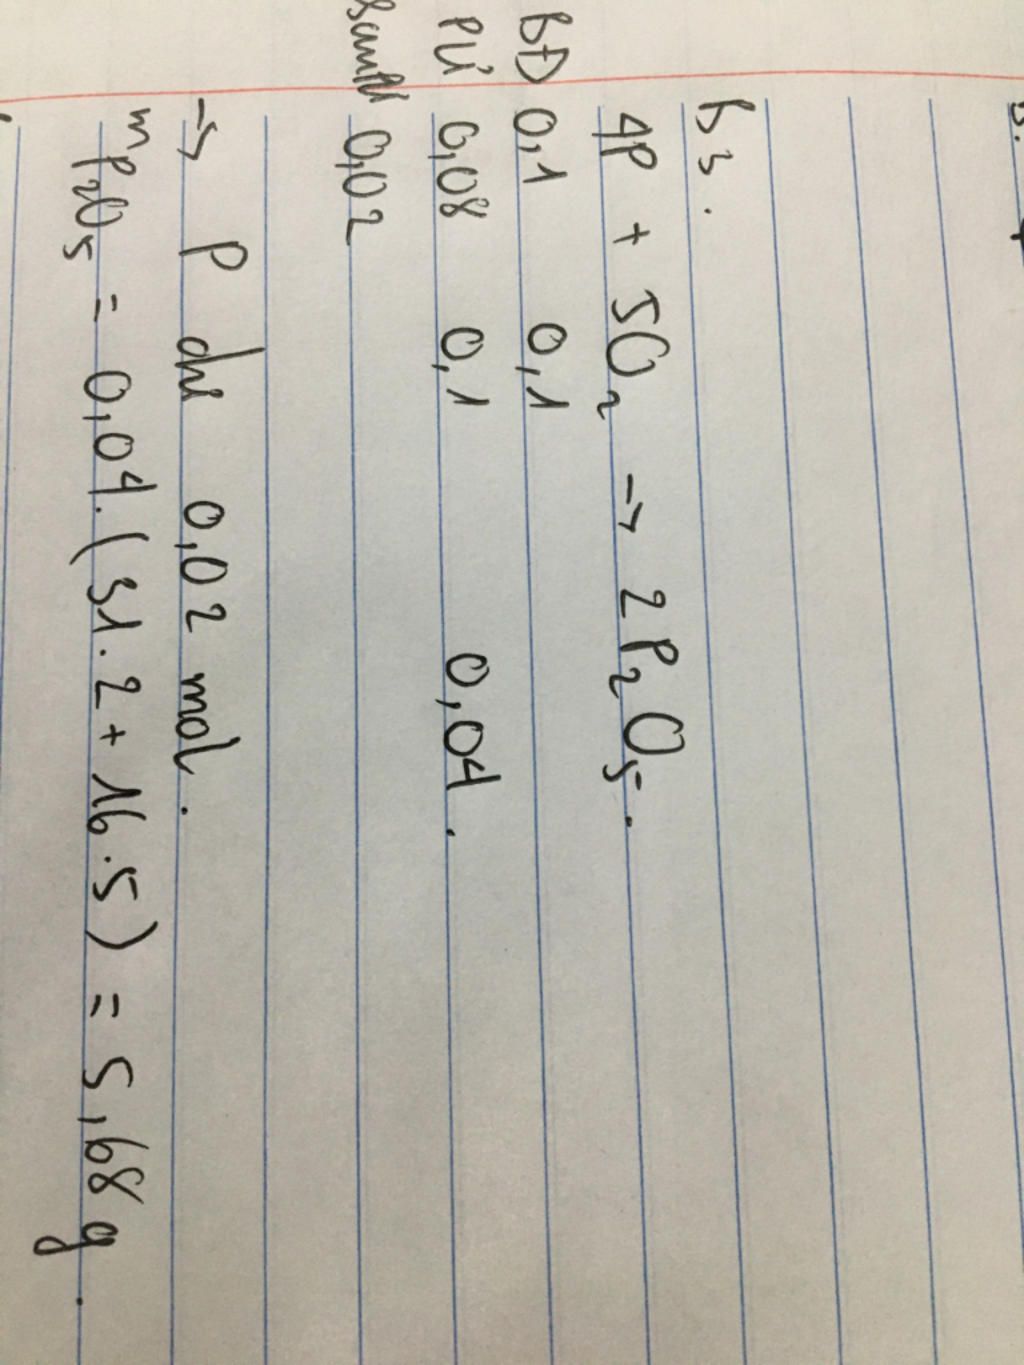 B3.
4P + 5O₂ → 2P₂O₅.
BĐ 0,1 0,1
PƯ 0,08 0,1 0,04.
0,02
→ P dư 0,02 mol.
mP₂O₅ = 0,04.(31.2 + 16.5) = 5,68 g.